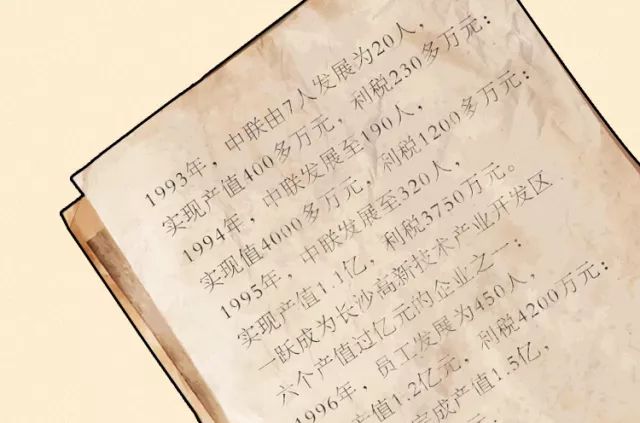 1993年，中联由7人发展为20人，
实现产值400多万元，利税230多万元：
1994年，中联发展至190人，
实现值4000多万元，利税1200多万元：
1995年，中联发展至320人，
实现产值1.1亿，利税3750万元。
一跃成为长沙高新技术产业开发区
六个产值过亿元的企业之一：
1996年，员工发展为450人，
产值1.2亿元，利税4200万元：
完成产值1.5亿，